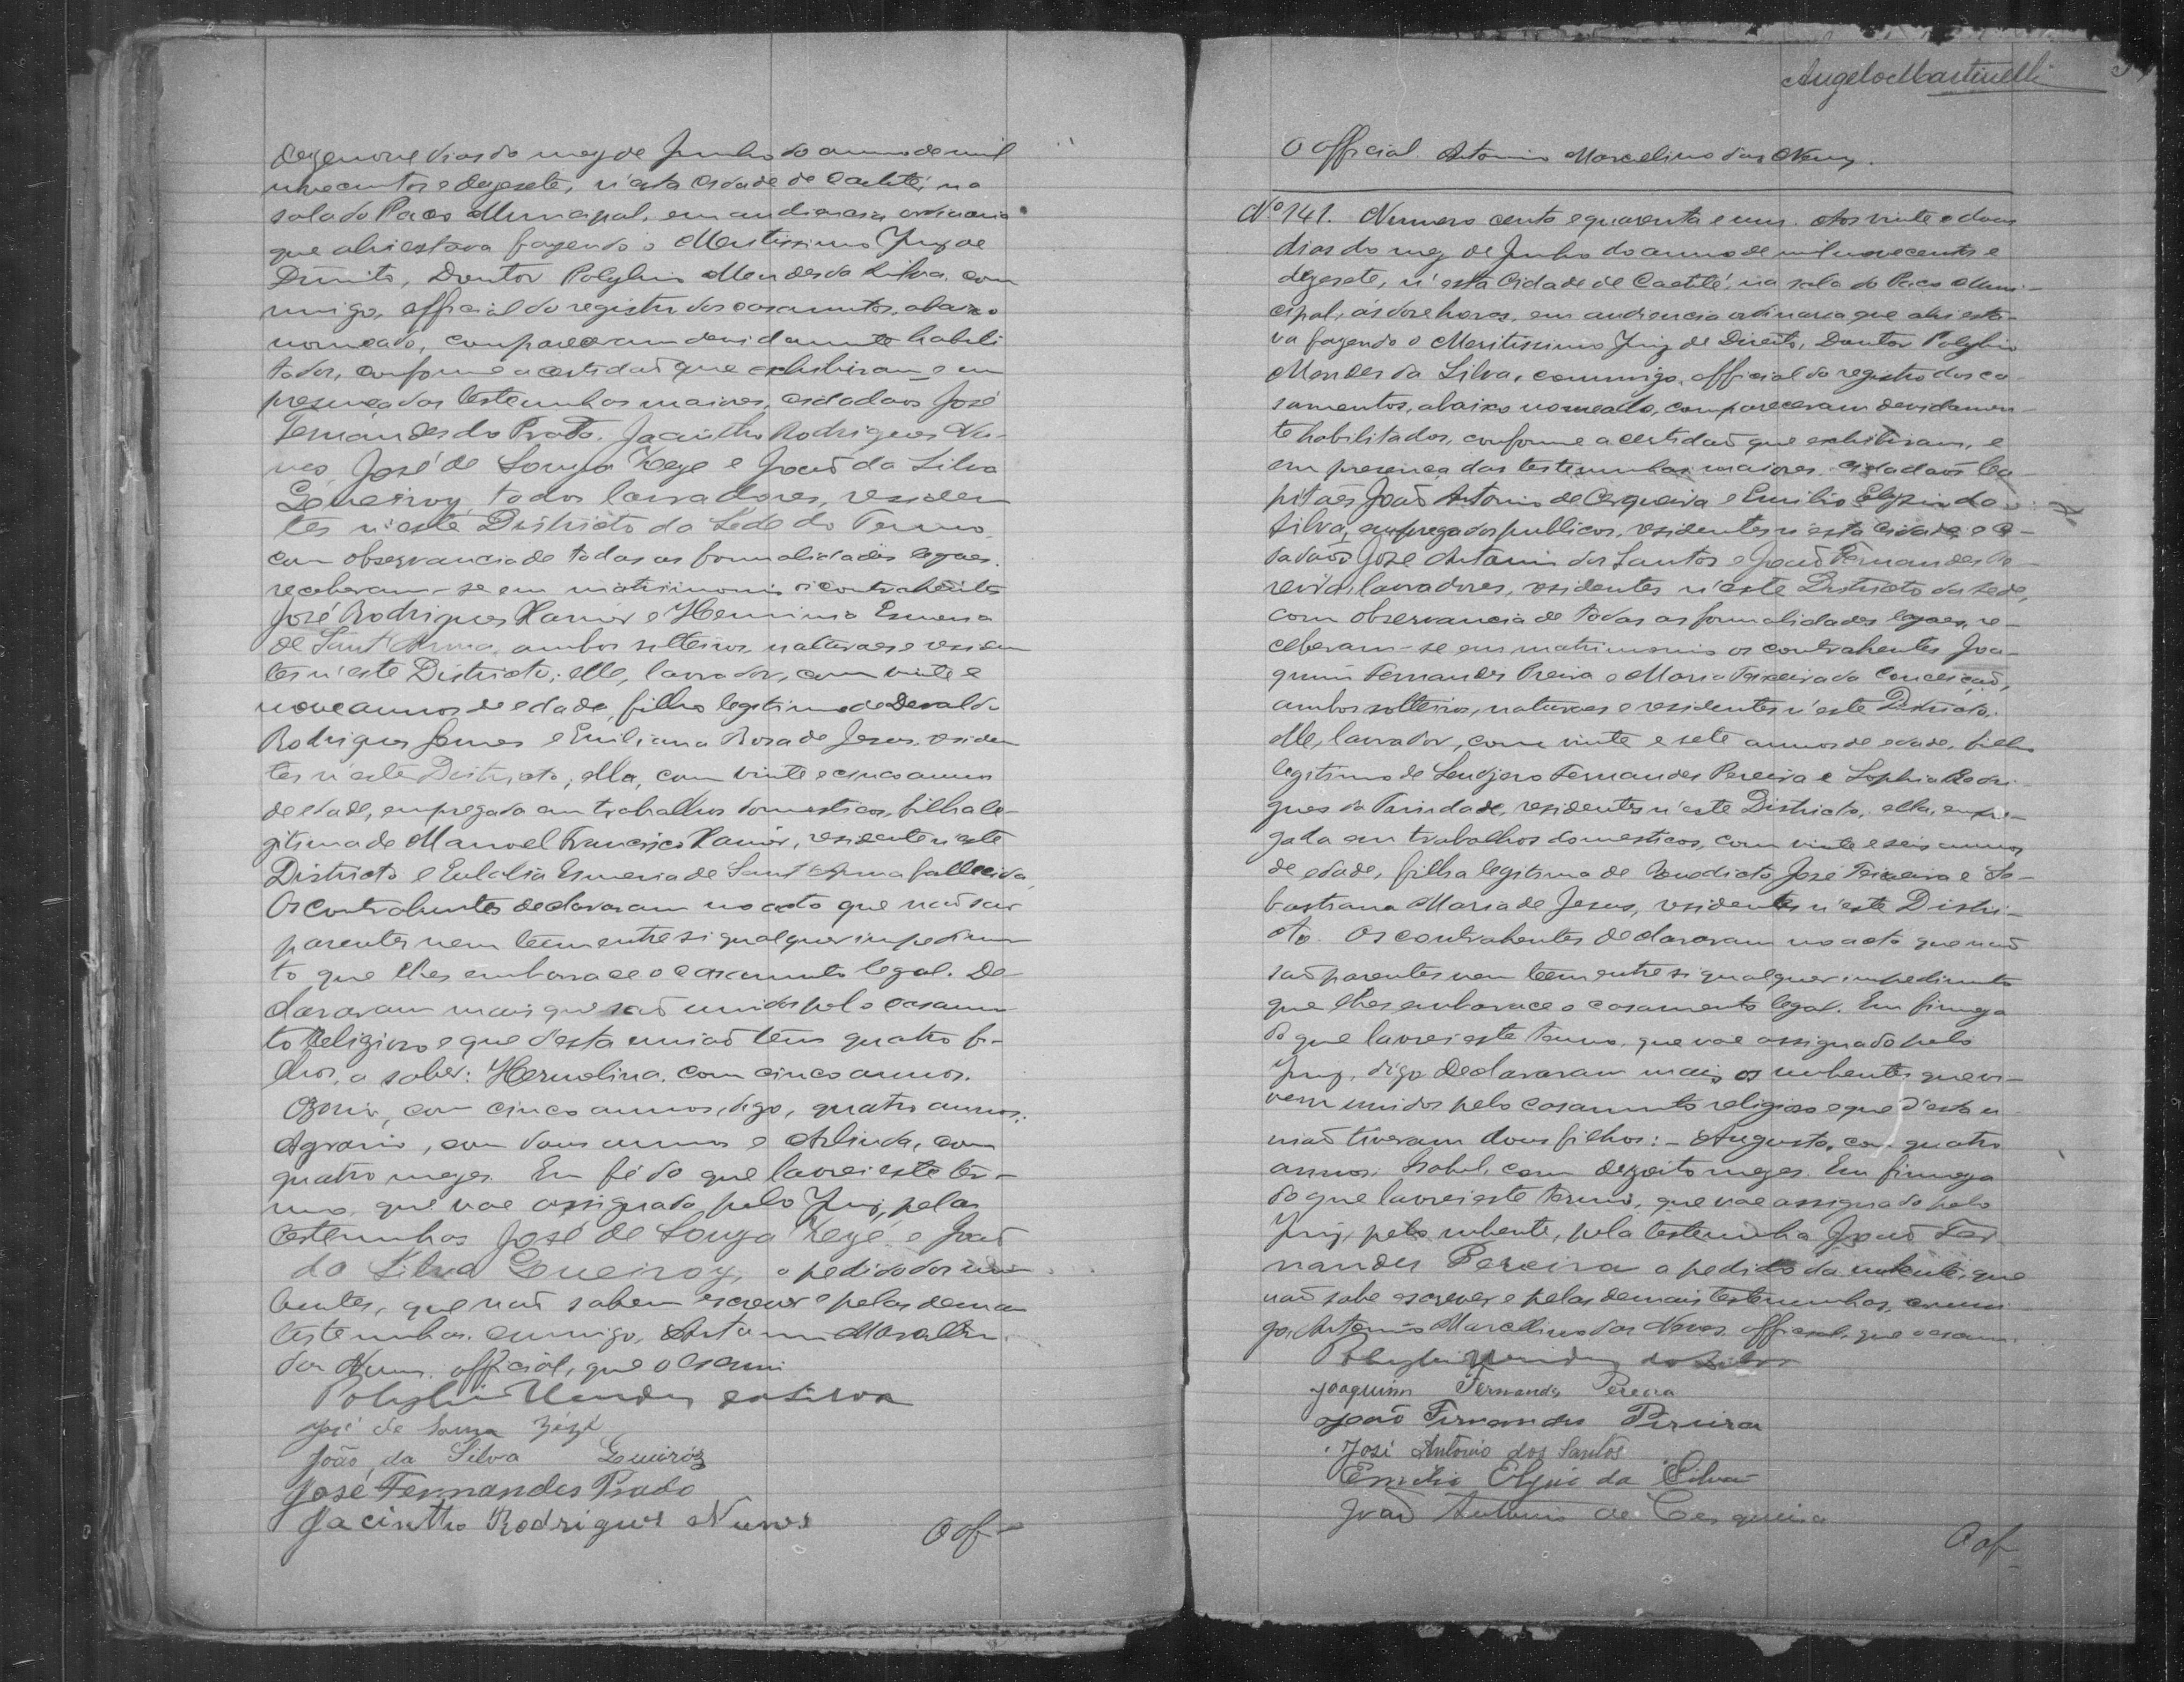 dezenove dias do mez de Junho do anno de mil
novecentos e dezesete, n'esta Cidade de Caetité, na
sala do Paço Municipal, em audiencia ordinaria
que ahi estava fazendo o Meritissimo Juiz de
Direito, Doutor Polybio Mendes da Silva, com
migo, official do registro dos casamentos, abaixo
nomeado, compareceram devidamente habili
tados, conforme a certidaõ que exhibiram e em
presença das testemunhas maiores, cidadaos José
Fernandes do Prado, Jacintho Rodrigues Nu-
nes José de Souza Zeze e Joaõ da Silva
Queiroz, todos lavradores, residen
tes n'este Districto da Sede do Termo,
com observancia de todas as formalidades legaes,
receberam-se em matrimonio os contrahentes
José Rodrigues Xavier e Herminia Esmera
de Sant'Anna, ambos solteiros, naturaes e residen
tes n'este Districto; elle, lavrador, com vinte e
nove annos de edade, filho legitimo de Devaldo
Rodrigues Gomes e Emiliana Rosa de Jesus, residen
tes n'este Districto; ella, com vinte e cinco annos
de edade, empregada em trabalhos domesticos, filha le-
gitima de Manoel Francisco Xavier, residente n'este
Districto e Eulalia Esmeria de Sant'Anna fallecida
Os contrahentes declararam no acto que naõ saõ
parentes nem teem entre si qualquer impedimen
to que lhes embarace o casamento legal. De-
clararam mais que saõ unidos pelo casamen
to religioso e que desta uniaõ tem quatro fi-
lhos, a saber: Hermelina, com cinco annos.
Ozorio, com cinco annos, digo, quatro annos;
Agrario, com dous annos e Arlinda, com
quatro mezes. Em fé do que lavrei este ter-
mo, que vae assignado pelo Juiz, pelas
testemunhas José de Souza Zezé e Joaõ
da Silva Queiroz, a pedido dos nu
bentes, que naõ sabem escrever e pelas demais
testemunhas, commigo, Antonio Marcellino
das Neves, official, que o escrevi
Polybio Mendes da Silva
José de Souza Zézé
João da Silva Queiróz
José Fernandes Prado
Jacintho Rodrigues Nunes
O of
Angelo Martinelli
O official. Antonio Marcelino das Neves.
Nº 141. Numero cento e quarenta e um. Aos vinte e dous
dias do mez de Junho do anno de mil novecentos e
dezesete, n'esta Cidade de Caetité, na sala do Paço Muni-
cipal, ás doze horas, em audiencia ordinaria que ahi esta-
va fazendo o Meritissimo Juiz de Direito, Doutor Polybio
Mendes da Silva, commigo, official do registro dos ca
samentos, abaixo nomeado, compareceram devidamen-
te habilitados, conforme a certidaõ que exhibiram, e
em presença das testemunhas maiores, cidadaõs Ca-
pitaẽs Joaõ Antonio de Cerqueira e Emilio Elyzio da
Silva, empregados publicos, residentes n'esta cidade e ci-
dadaõs José Antonio dos Santos e Joaõ Fernandes Pe-
reira, lavradores, residentes n'este Districto da Sede,
com observancia de todas as formalidades legaes, re-
ceberam-se em matrimonio os contrahentes Joa-
quim Fernandes Pereira e Maria Teixeira da Conceiçaõ,
ambos solteiros, naturaes e residentes n'este Districto.
elle, lavrador, com vinte e sete annos de edade, filho
legitimo de Fernandes Pereira e Sophia Rodri
gues da Trindade, residentes n'este Districto, ella, empre-
gada em trabalhos domesticos, com vinte e seis annos
de edade, filha legitima de Benedicto José Teixeira e Se-
bastiana Maria de Jesus, residentes n'este Distri-
cto. Os contrahentes declararam no acto que naõ
saõ parentes nem teem entre si qualquer impedimento
que lhes embarace o casamento legal. Em firmeza
do que lavrei este termo, que vae assignado pelo
Juiz, digo Declararam mais os nubentes que vi-
vem unidos pelo casamento religioso e que d'esta u
niaõ tiveram dous filhos: - Augusta, com quatro
annos. Isabel, com dezoito mezes. Em firmeza
do que lavrei este termo, que vae assignado pelo
Juiz, pelo nubente, pela testemunha Joaõ Fer
nandes Pereira a pedido da nubente, que
naõ sabe escrever e pelas demais testemunhas, commi
go, Antonio Marcellino das Neves, official, que o escrevi.
Polybio Mendes da Silva
Joaquim Fernandes Pereira
João Fernandes Pereira
José Antonio dos Santos
Emilio Elyzio da Silva
Joaõ Antonio de Cerqueira
O of